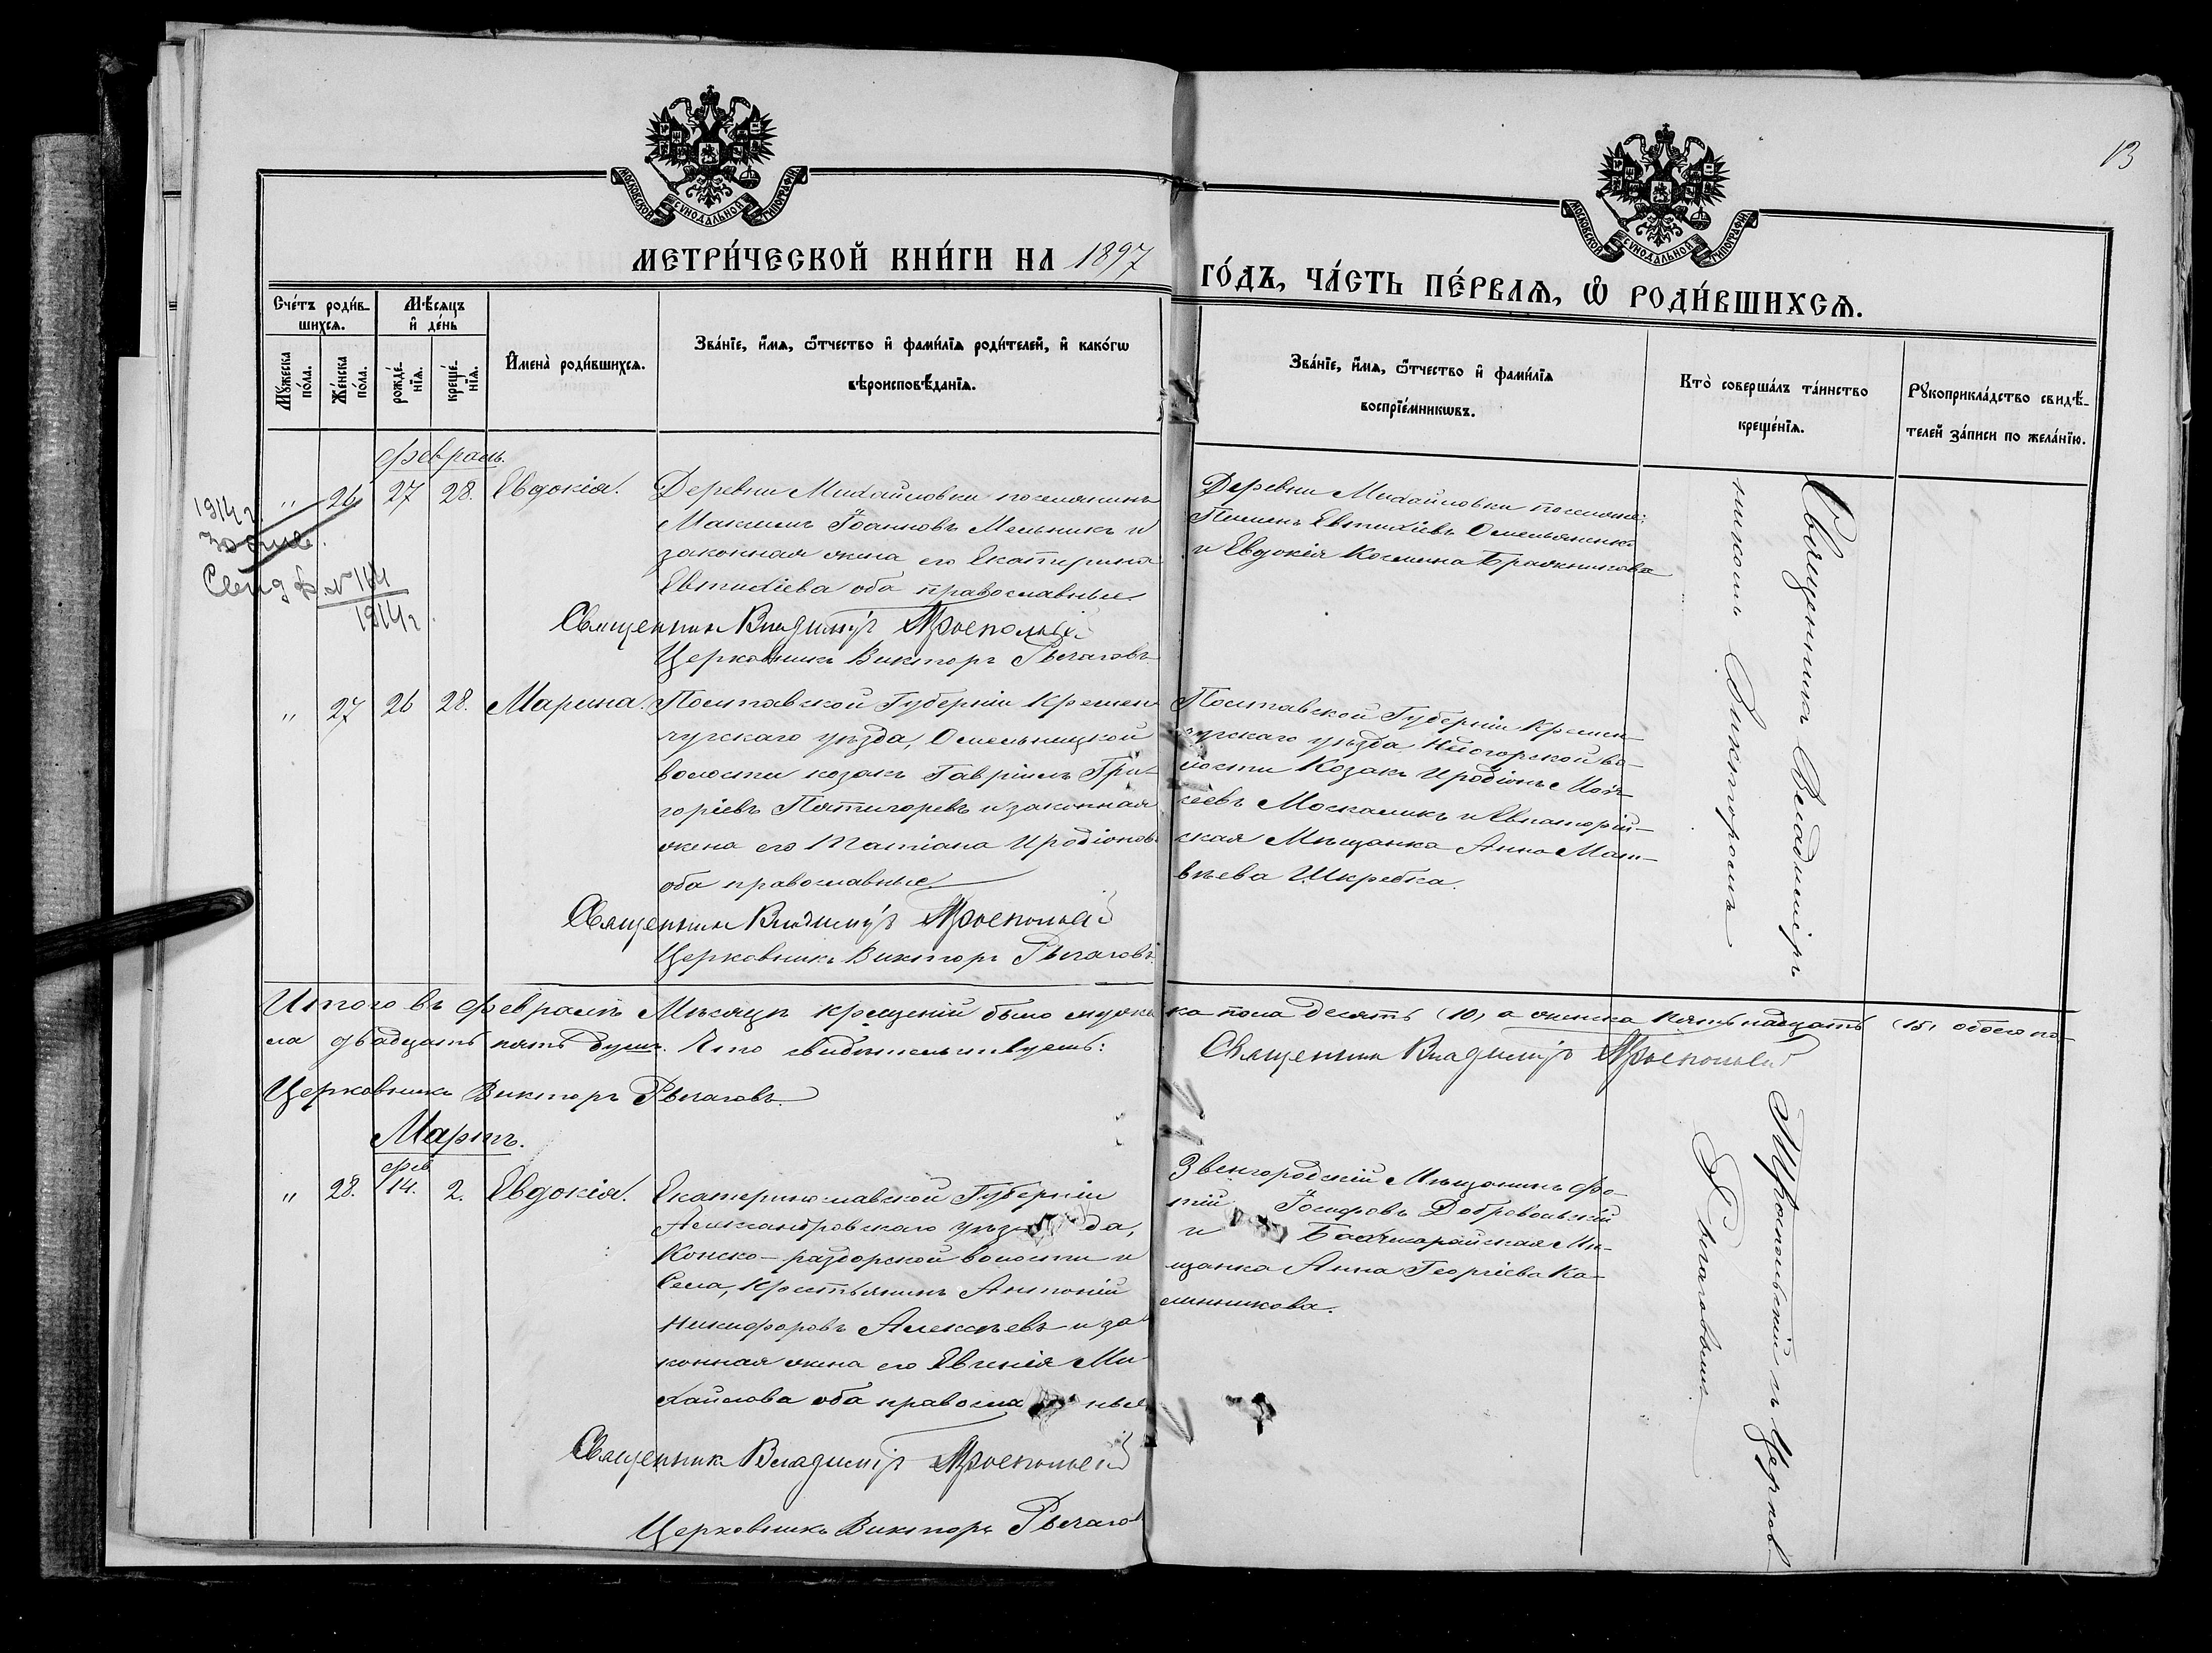 13
МОСКОВСКОЙ СУНОДАЛЬНОЙ ТИПОГРАФІИ
МОСКОВСКОЙ СУНОДАЛЬНОЙ ТИПОГРАФІИ
МЕТРИ́ЧЕСКОЙ КНИ́ГИ НА 1897
ГО́ДЪ, ЧА́СТЬ ПЕ́РВАѦ, Ѽ РОДИ́ВШИХСѦ.
Сче́тъ роди́в-
шихсѧ.
Мꙋ́жеска
по́ла.
Же́нска
по́ла.
Мѣ́сѧцъ
и҆ де́нь
рожде́-
нїѧ.
креще́-
нїѧ.
И҆мена̀ роди́вшихсѧ.
Зва́нїе, и҆́мѧ, ѻ҆́тчество и҆ фами́лїѧ роди́телей, и҆ како́гѡ
вѣроисповѣ́данїѧ.
Зва́нїе, и҆́мѧ, ѻ҆́тчество и҆ фами́лїѧ
воспрїе́мникѡвъ.
Кто̀ соверша́лъ та́инство
креще́нїѧ.
Рꙋкоприкла́дство свидѣ́-
телей за́писи по жела́нїю.
Февраль.
" 26 27 28. Евдокія.
1914 г.
Свид. № 144
1914 г.
Деревни Михайловки поселянинъ
Максимъ Іоанновъ Мельникъ и
законная жена его Екатерина
Евтихіева оба православные.
Священникъ Владиміръ
Церковникъ Викторъ Рычаговъ
Деревни Михайловки поселяне:
Пименъ Евтихіевъ Омельяненко
и Евдокія Космина Бражникова
" 27 26 28. Марина.
Полтавской Губерніи Кремен-
чугскаго уѣзда, Омельницкой
волости козакъ Гавріилъ Гри-
горіевъ Пятигорецъ и законная
жена его Татіана Иродіонова
оба православные.
Священникъ Владиміръ
Церковникъ Викторъ Рычаговъ.
Полтавской Губерніи Кремен-
чугскаго уѣзда во-
лости Козакъ Иродіонъ Мои-
сеевъ Москаликъ и Евпаторій-
ская Мѣщанка Анна Мат-
вѣева Шкребка.
Священникъ Владиміръ
никомъ Викторомъ
Итого въ Февралѣ Мѣсяцѣ крещеній было мужес-
ка пола десять (10) а женска пятнадцать (15) обоего по-
ла двадцать пять душъ. Что свидѣтельствуемъ:
Священникъ Владиміръ
Церковникъ Викторъ Рычаговъ.
Мартъ.
фев
" 28. 14. 2. Евдокія.
Екатеринославской Губерніи
Александровскаго уѣз да,
Конско-раздорской волости и
Села, Крестьянинъ Антоній
Никифоровъ Алексѣевъ и за-
конная жена его Евгенія Ми-
хайлова оба правосла ные
Священникъ Владиміръ
Церковникъ Викторъ Рычагов
Звенгородскій Мѣщанинъ Фо-
тій Іосифовъ Добровольскій
и Бахчисарайская Мѣ-
щанка Анна Георгіева Ка-
линникова.
и Церков-
Рычаговымъ.